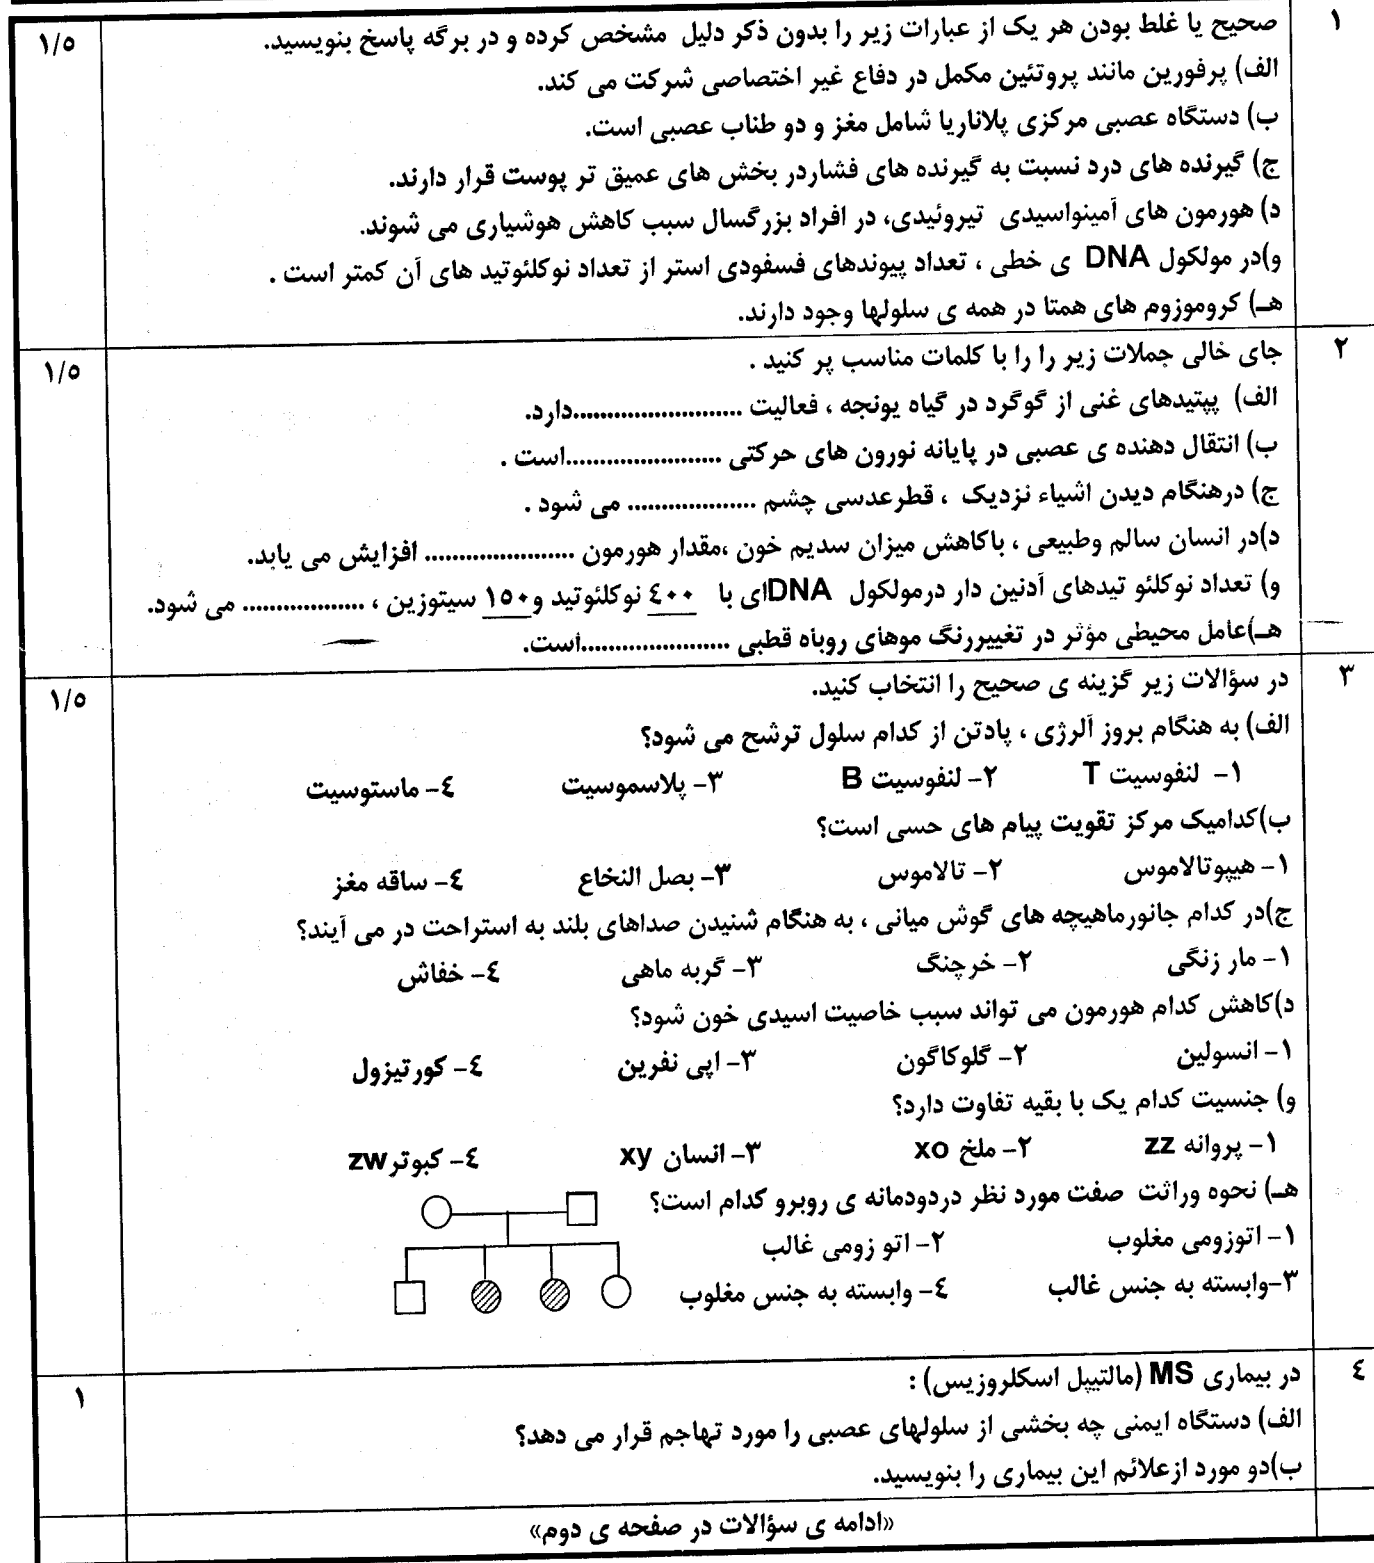 ۱ صحیح یا غلط بودن هر یک از عبارات زیر را بدون ذکر دلیل مشخص کرده و در برگه پاسخ بنویسید. ۱/۵
الف) پرفورین مانند پروتئین مکمل در دفاع غیر اختصاصی شرکت می کند.
ب) دستگاه عصبی مرکزی پلاناریا شامل مغز و دو طناب عصبی است.
ج) گیرنده های درد نسبت به گیرنده های فشاردر بخش های عمیق تر پوست قرار دارند.
د) هورمون های آمینواسیدی تیروئیدی، در افراد بزرگسال سبب کاهش هوشیاری می شوند.
و)در مولکول DNA ی خطی ، تعداد پیوندهای فسفودی استر از تعداد نوکلئوتید های آن کمتر است .
هـ) کروموزوم های همتا در همه ی سلولها وجود دارند.
۲ جای خالی جملات زیر را را با کلمات مناسب پر کنید . ۱/۵
الف) پپتیدهای غنی از گوگرد در گیاه یونجه ، فعالیت ........................دارد.
ب) انتقال دهنده ی عصبی در پایانه نورون های حرکتی ......................است .
ج) درهنگام دیدن اشیاء نزدیک ، قطرعدسی چشم .................. می شود .
د)در انسان سالم وطبیعی ، باکاهش میزان سدیم خون ،مقدار هورمون ..................... افزایش می یابد.
و) تعداد نوکلئو تیدهای آدنین دار درمولکول DNAای با ٤٠٠ نوکلئوتید و١٥٠ سیتوزین ، ................. می شود.
هـ)عامل محیطی مؤثر در تغییررنگ موهای روباه قطبی .....................است.
۳ در سؤالات زیر گزینه ی صحیح را انتخاب کنید. ۱/۵
الف) به هنگام بروز آلرژی ، پادتن از کدام سلول ترشح می شود؟
۱- لنفوسیت T ۲- لنفوسیت B ۳- پلاسموسیت ٤- ماستوسیت
ب)کدامیک مرکز تقویت پیام های حسی است؟
۱- هیپوتالاموس ۲- تالاموس ۳- بصل النخاع ٤- ساقه مغز
ج)در کدام جانورماهیچه های گوش میانی ، به هنگام شنیدن صداهای بلند به استراحت در می آیند؟
۱- مار زنگی ۲- خرچنگ ۳- گربه ماهی ٤- خفاش
د)کاهش کدام هورمون می تواند سبب خاصیت اسیدی خون شود؟
۱- انسولین ۲- گلوکاگون ۳- اپی نفرین ٤- کورتیزول
و) جنسیت کدام یک با بقیه تفاوت دارد؟
۱- پروانه zz ۲- ملخ xo ۳- انسان xy ٤- کبوترzw
هـ) نحوه وراثت صفت مورد نظر دردودمانه ی روبرو کدام است؟
۱- اتوزومی مغلوب ۲- اتو زومی غالب
۳-وابسته به جنس غالب ٤- وابسته به جنس مغلوب
٤ در بیماری MS (مالتیپل اسکلروزیس) : ۱
الف) دستگاه ایمنی چه بخشی از سلولهای عصبی را مورد تهاجم قرار می دهد؟
ب)دو مورد ازعلائم این بیماری را بنویسید.
«ادامه ی سؤالات در صفحه ی دوم»